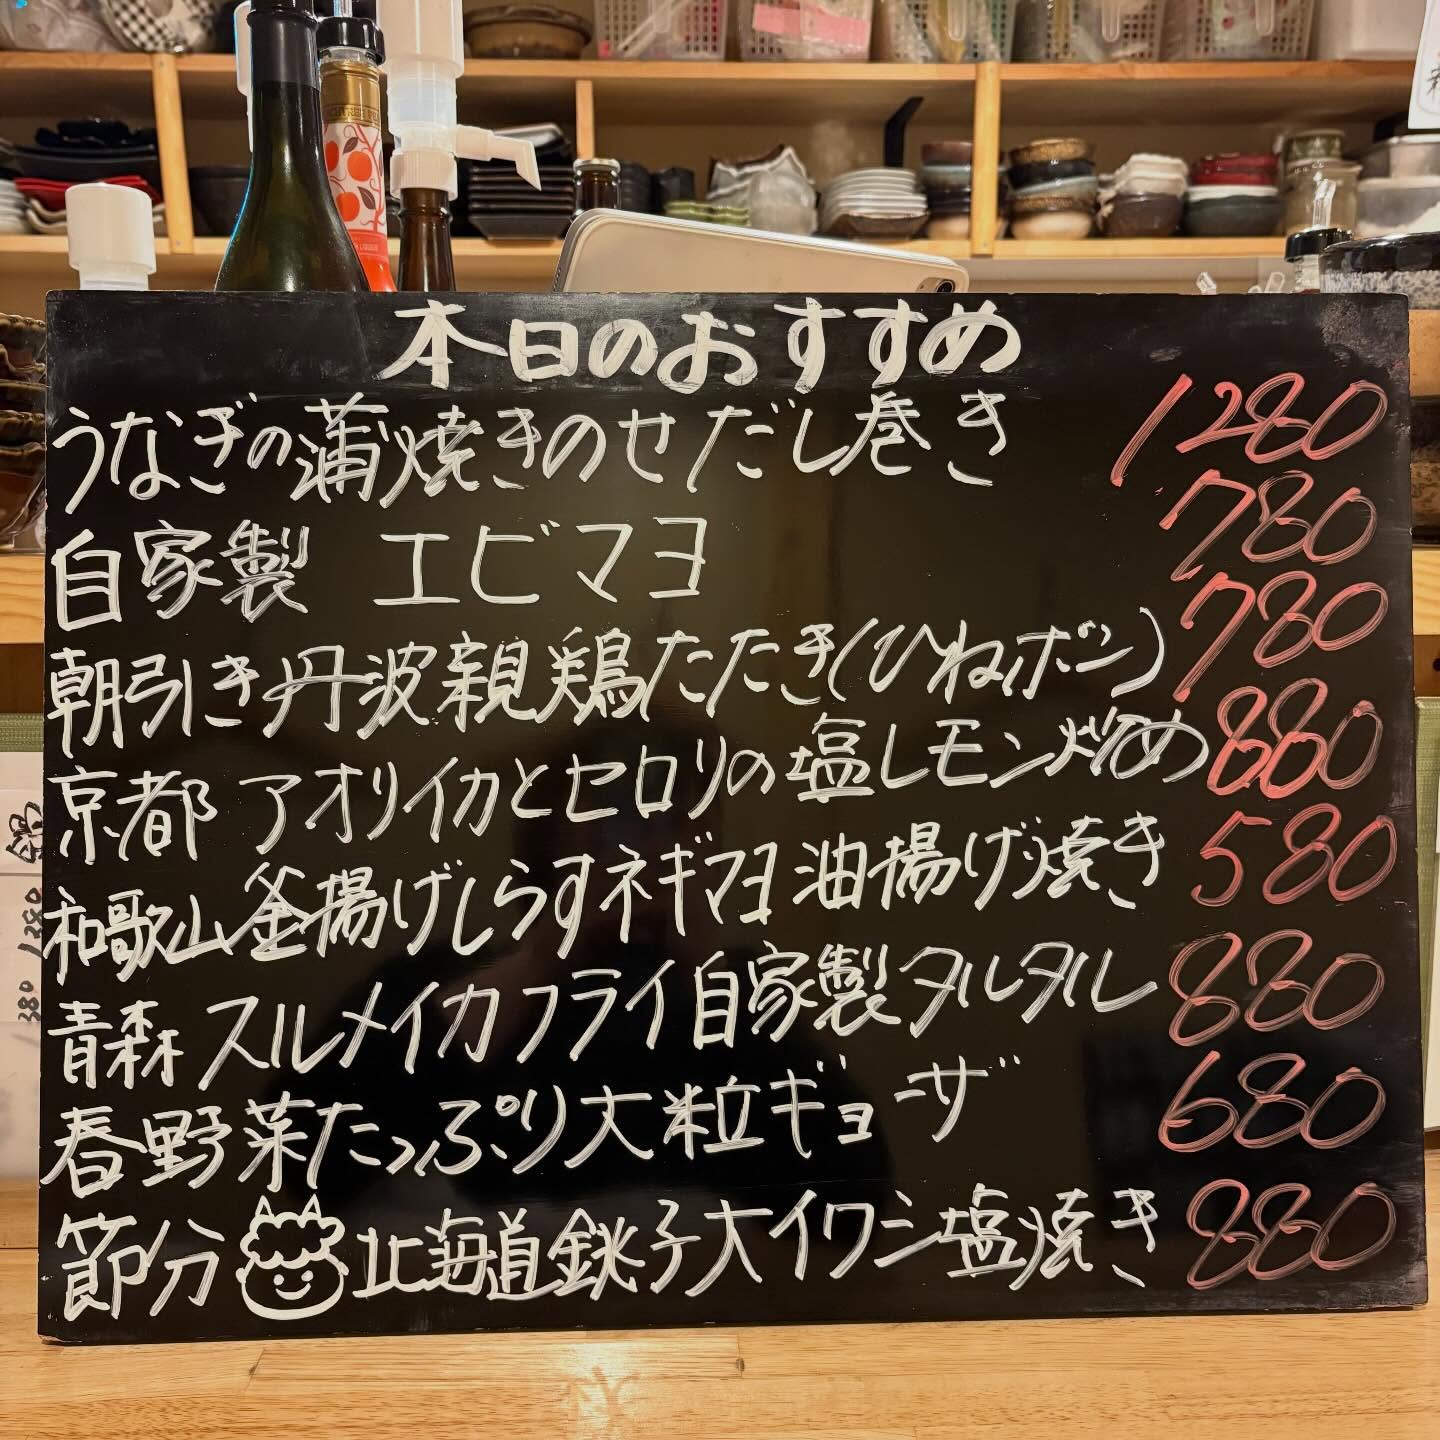 本日のおすすめ
うなぎの蒲焼きのせだし巻き 1280
自家製 エビマヨ 780
朝引き丹波親鶏たたき(ひねポン) 780
京都 アオリイカとセロリの塩レモン炒め 880
和歌山 釜揚げしらすネギマヨ油揚げ焼き 580
青森 スルメイカフライ自家製タルタル 880
春野菜たっぷり大粒ギョーザ 680
節分 北海道銚子大イワシ塩焼き 880
380 1280